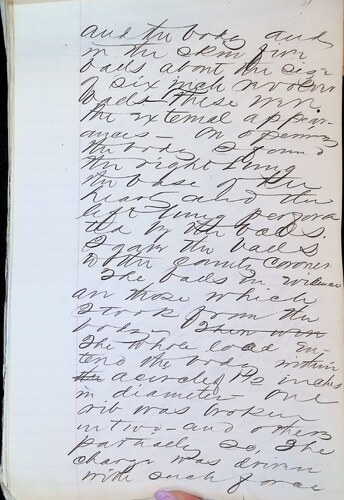 and the body and
in the skin five
balls about the size
of six inch revolver
balls These were
the external appear
ances — On opening
the body I found
the right lung
the base of the
heart and the
left lung perfora
ted by the balls.
I gave the balls
to the County Coroner
The balls in
are those which
I took from the
body. Then were
The whole load en
tered the body within
the a circle of inches
in diameter — One
rib was broken
in two — and others
partially so, The
charge was driven
with such force